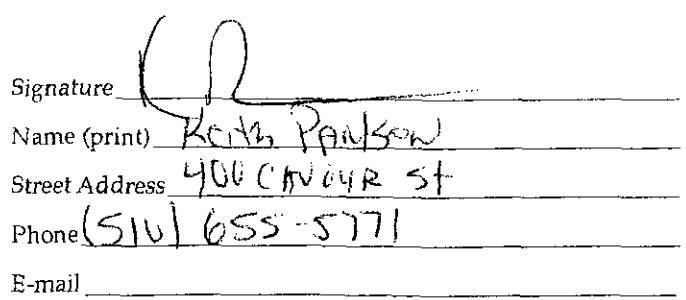 Signature
Name (print) Keith PAWSON
Street Address 400 CAVOUR St
Phone (510) 655-5771
E-mail